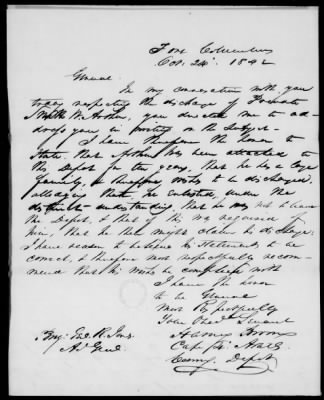 Fort Columbus
Oct. 24' 1842
General
In my conversation with you
today respecting the discharge of Private
W. Arthur, you directed me to ad-
dress you in writing on the subject.
I have therefore the honor to
State that Arthur has been attached to
this Depot for five years, that he has a large
family, & therefore wants to be discharged,
alledging that he enlisted, under the
distinct understanding that he was not to leave
the Depot, & that if he was required to
him, that he then might claim his discharge.
I have reason to believe his statements to be
correct, & therefore most respectfully recom-
mend that his wishes be complied with
I have the honor
to be General
Most Respectfully
Your Obed. Servant
Harvey Brown
Capt. 4: Art.
Comg. Depot
Brig: Gen. R. Jones
Ad. Genl.